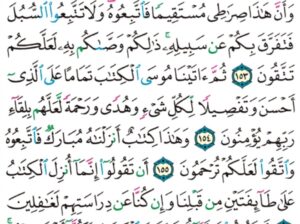 وَأَنَّ هَٰذَا صِرَٰطِى مُسْتَقِيمًا فَٱتَّبِعُوهُ وَلَا تَتَّبِعُوا۟ ٱلسُّبُلَ
فَتَفَرَّقَ بِكُمْ عَن سَبِيلِهِۦ ذَٰلِكُمْ وَصَّىٰكُم بِهِۦ لَعَلَّكُمْ
تَتَّقُونَ ١٥٣ ثُمَّ ءَاتَيْنَا مُوسَى ٱلْكِتَٰبَ تَمَامًا عَلَى ٱلَّذِىٓ
أَحْسَنَ وَتَفْصِيلًا لِّكُلِّ شَىْءٍ وَهُدًى وَرَحْمَةً لَّعَلَّهُم بِلِقَآءِ
رَبِّهِمْ يُؤْمِنُونَ ١٥٤ وَهَٰذَا كِتَٰبٌ أَنزَلْنَٰهُ مُبَارَكٌ فَٱتَّبِعُوهُ
وَٱتَّقُوا۟ لَعَلَّكُمْ تُرْحَمُونَ ١٥٥ أَن تَقُولُوٓا۟ إِنَّمَآ أُنزِلَ ٱلْكِتَٰبُ
عَلَىٰ طَآئِفَتَيْنِ مِن قَبْلِنَا وَإِن كُنَّا عَن دِرَاسَتِهِمْ لَغَٰفِلِينَ